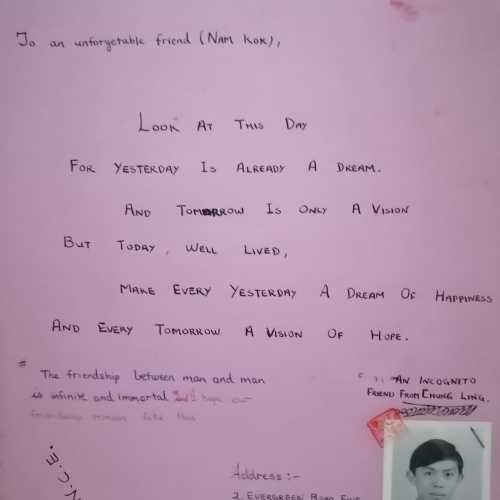 To an unforgetable friend (NAM KOK),
LOOK AT THIS DAY
FOR YESTERDAY IS ALREADY A DREAM.
AND TOMORROW IS ONLY A VISION
BUT TODAY, WELL LIVED,
MAKE EVERY YESTERDAY A DREAM OF HAPPINESS
AND EVERY TOMORROW A VISION OF HOPE.
The friendship between man and man
is infinite and immortal hope our
friendship remain like this
AN INCOGNITO
FRIEND FROM CHUNG LING.
Address :-
2 EVERGREEN ROAD